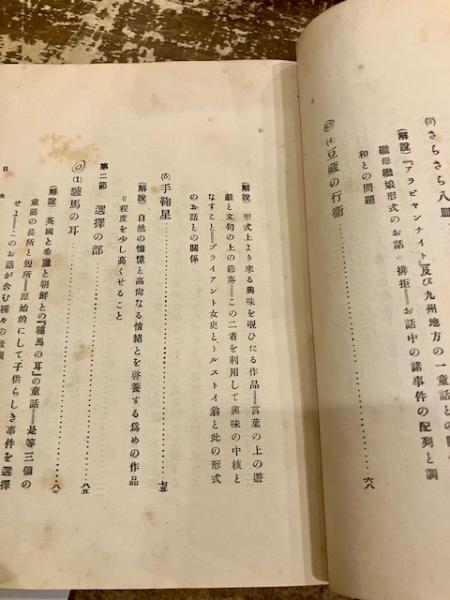 (3) さらさら八皿
(解説) 『アラビヤンナイト』及び九州地方の一童話との
繼母繼娘形式のお話 排拒――お話中の諸事件の配列と調
和との問題
(4) 豆藏の行衞……六八
(解說) 形式上より來る興味を覗ひたる作品――言葉の上の遊
戲と文句の上の節奏――この二者を利用して興味の中核と
なすこと――ブライアント女史と、トルストイ翁と此の形式
のお話との關係
(5) 手鞠星……七五
(解說) 自然の憧憬と高尚なる情緒とを啓養する爲めの作品
程度を少し高くせること
第二節 選擇の部……八五
(1) 驢馬の耳……八
(解說) 英國と希臘と朝鮮との『驢馬の耳』の童話――是等三個の
童話の長所と短所――原始的にして子供らしき事件を選擇
せよ――このお話が含む種々の
目 次